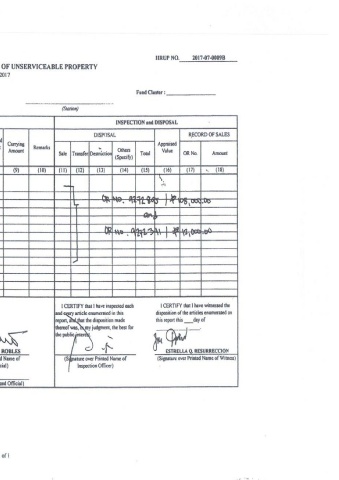 IIRUP NO. 2017-07-0009B
OF UNSERVICEABLE PROPERTY
2017
Fund Cluster :
(Station)
INSPECTION and DISPOSAL
DISPOSAL
RECORD OF SALES
Carrying Amount
Remarks
Sale
Transfer
Destruction
Others (Specify)
Total
Appraised Value
OR No.
Amount
(9) (10) (11) (12) (13) (14) (15) (16) (17) (18)
OR No. / ₱
and
OR No. / ₱
I CERTIFY that I have inspected each
and every article enumerated in this
report, and that the disposition made
thereof was, in my judgment, the best for
the public interest.
I CERTIFY that I have witnessed the
disposition of the articles enumerated on
this report this ___ day of
ROBLES
ESTRELLA Q. RESURRECCION
(Signature over Printed Name of
Inspection Officer)
(Signature over Printed Name of Witness)
d Name of
cial)
zed Official)
of 1